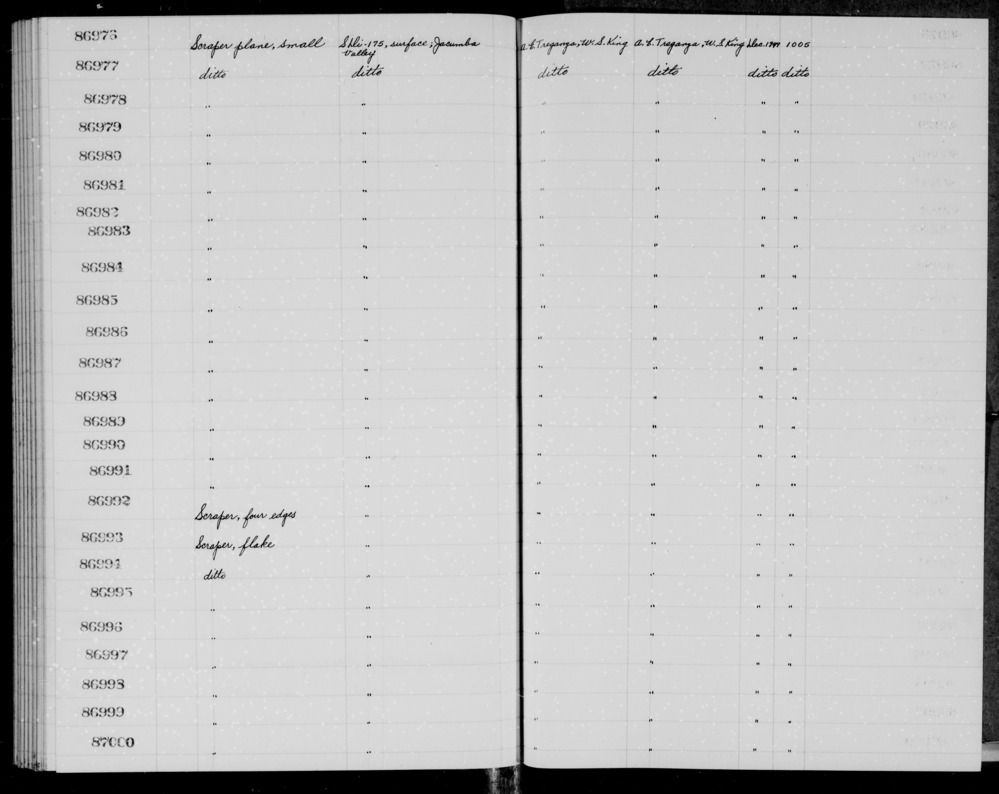 86976 Scraper plane, small SDi-175, surface; Jacumba Valley A.E. Treganza, W.S. King A.E. Treganza, W.S. King 1005
86977 ditto ditto ditto ditto ditto ditto
86978 " " " " " "
86979 " " " " " "
86980 " " " " " "
86981 " " " " " "
86982 " " " " " "
86983 " " " " " "
86984 " " " " " "
86985 " " " " " "
86986 " " " " " "
86987 " " " " " "
86988 " " " " " "
86989 " " " " " "
86990 " " " " " "
86991 " " " " " "
86992 Scraper, four edges " " " " "
86993 Scraper, flake " " " " "
86994 ditto " " " " "
86995 " " " " " "
86996 " " " " " "
86997 " " " " " "
86998 " " " " " "
86999 " " " " " "
87000 " " " " " "